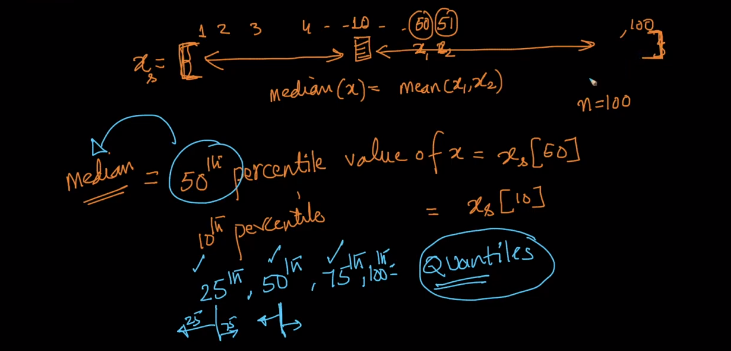 1 2 3 4 - - 10 - - . 50 51 , 100
xₛ = [ x₁ x₂ ]
median(x) = mean(x₁, x₂)
n=100
Median = 50th percentile value of x = xₛ[50]
10th percentile = xₛ[10]
25th, 50th, 75th, 100th = Quantiles
25 75